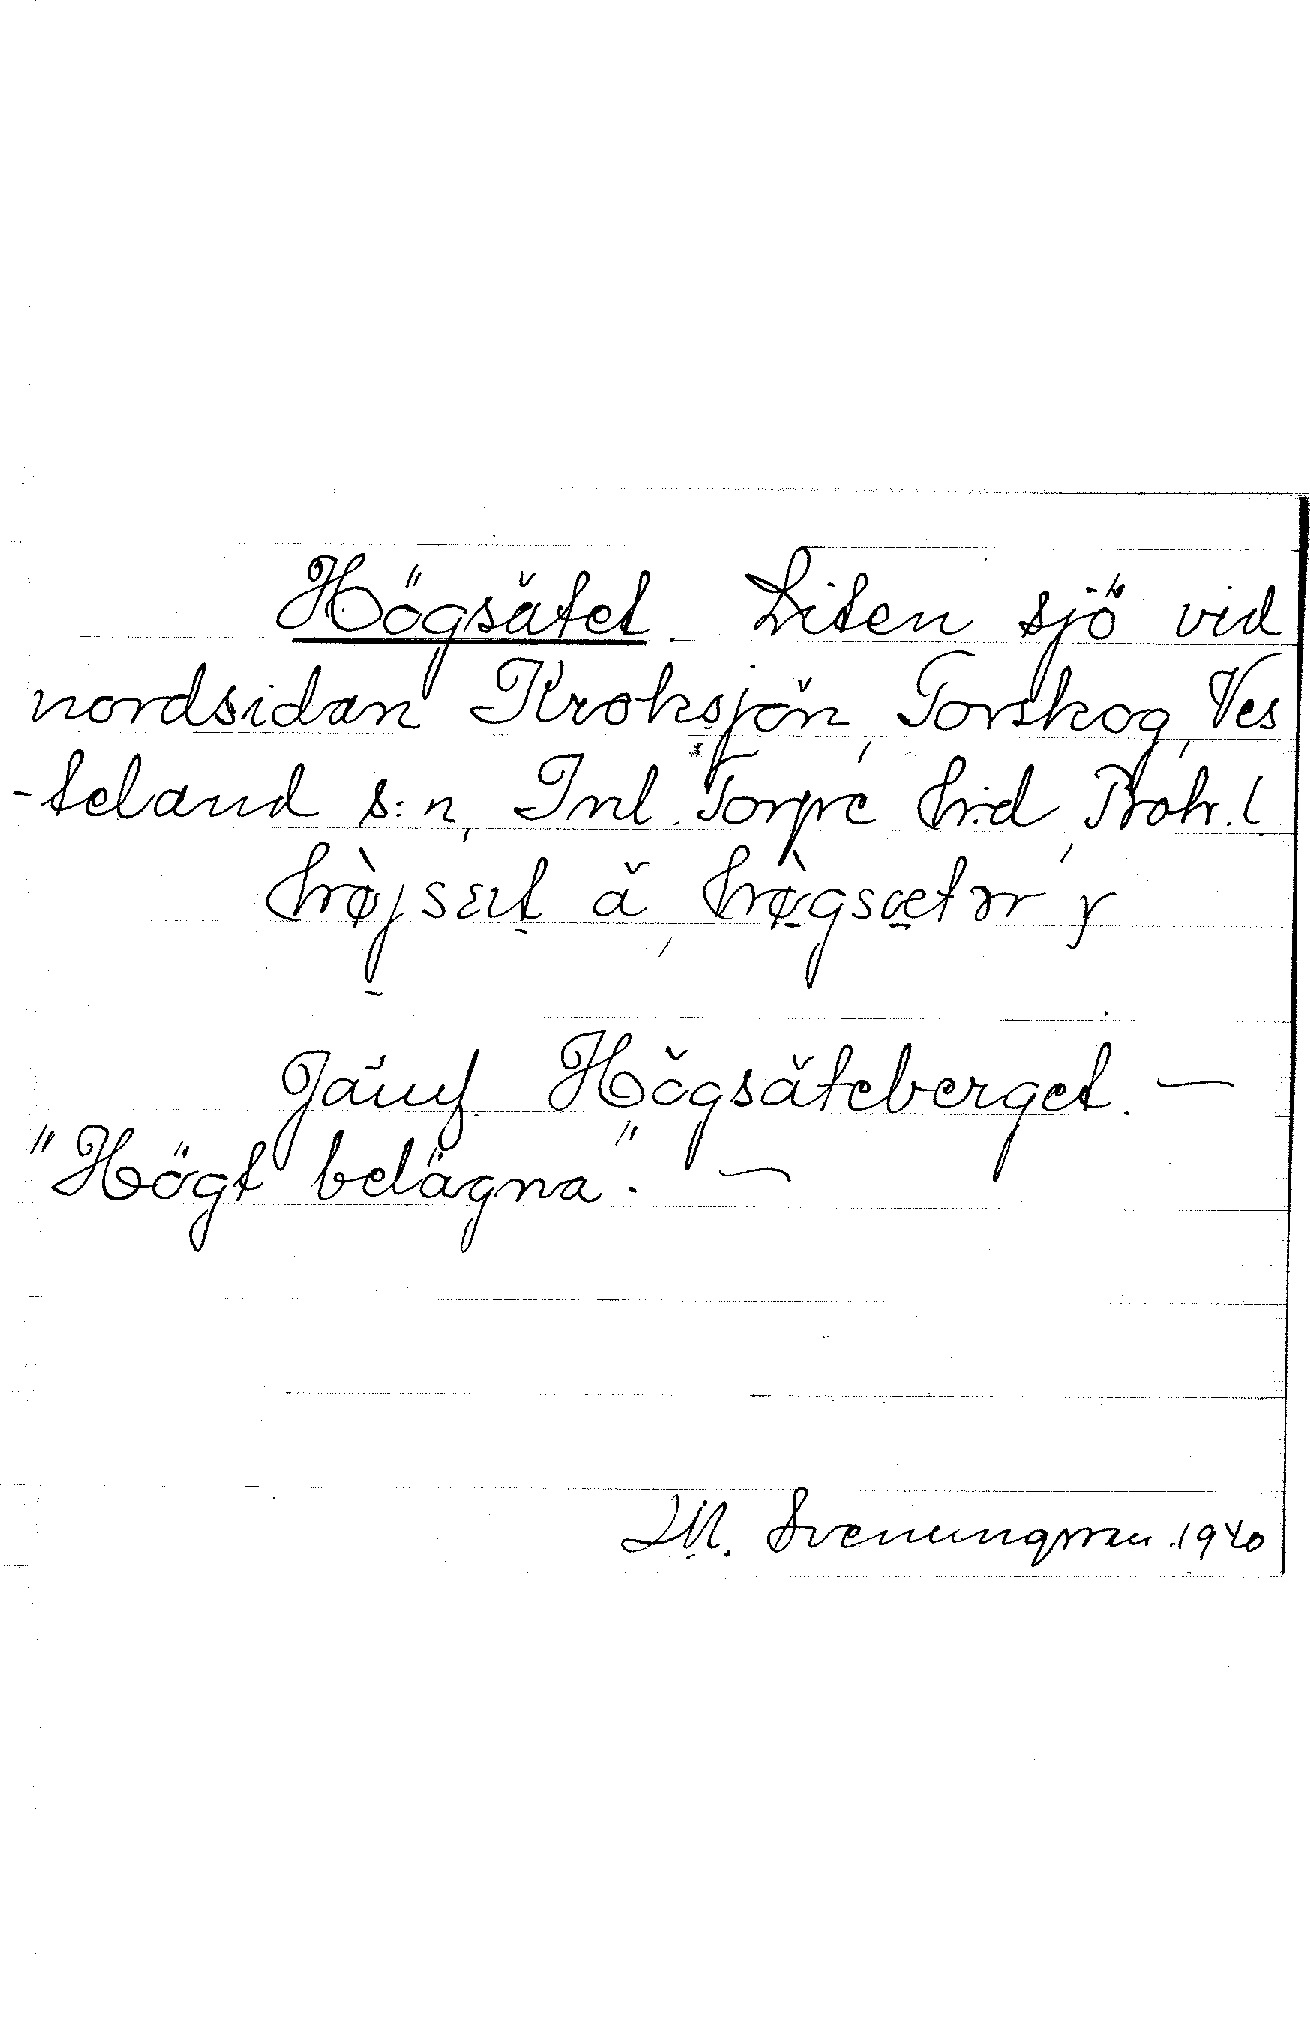 Högsätet. Liten sjö vid
nordsidan Kroksjön, Torskog, Ves
-teland s:n, Inl. Torpe hrd, Boh. l
hø̀jsæt ä, hø̀gsætər y
Jämf. Högsäteberget. —
"Högt belägna". —
Svenungsson 1940